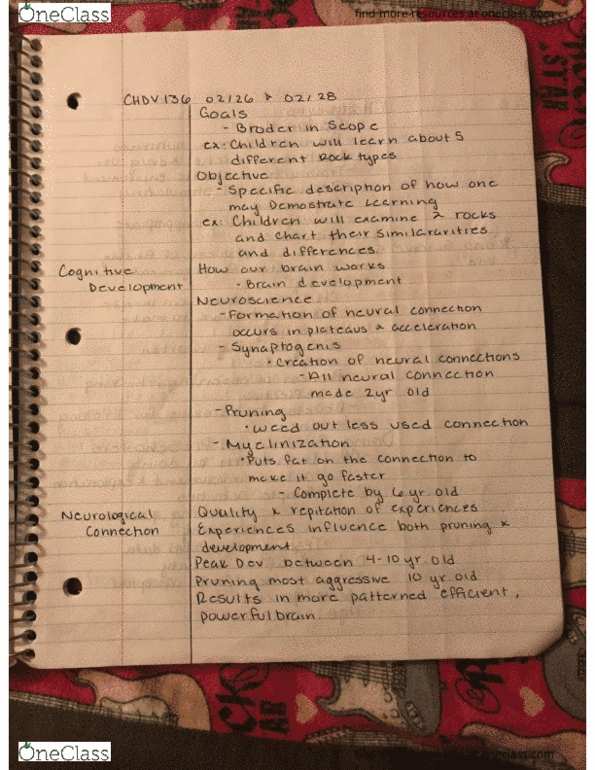 OneClass
find more resources at oneclass.com
STAR
CHDV 136 02/26 & 02/28
Goals
- Broder in Scope
ex: Children will learn about 5
different Rock types
Objective
- Specific description of how one
may Demostrate Learning
ex: Children will examine 2 rocks
and chart their similararities
and differences.
Cognitive Development
How our brain works
• Brain development
Neuroscience
- Formation of neural connection
occurs in plateaus & acceleration
- Synaptogenis
• Creation of neural connections
- All neural connection
made 2yr old
- Pruning
• Weed out less used connection
- Myelinization
• Puts fat on the connection to
make it go faster
- Complete by 6 yr. old
Neurological Connection
Quality & repitation of experiences
Experiences influence both pruning &
development
Peak Dev between 4-10 yr. old
Pruning most aggressive 10 yr. old
Results in more patterned efficient,
powerful brain.
OneClass
oneclass.com